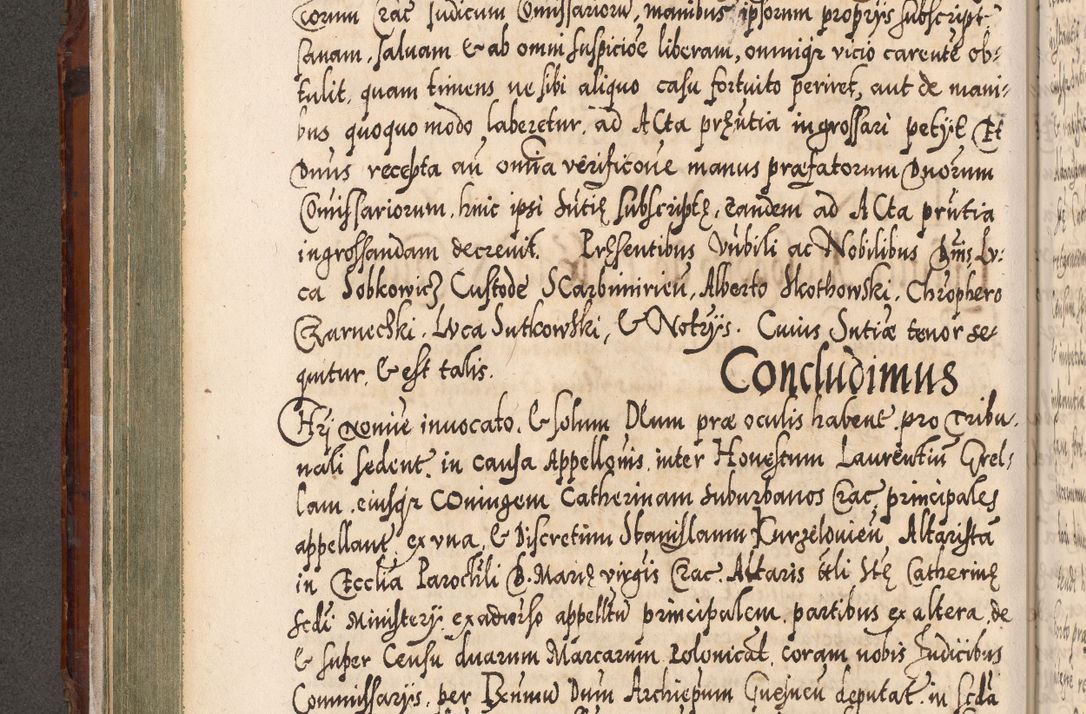 torum Crac Judicum Comissarioru, manibus ipsorum proprys subscript
sanam, saluam & ab omni suspicioe liberam, omniqr vicio carente ob-
tulit, quam timens ne sibi aliquo casu fortuito periret, aut de mani-
bus quoquo modo laberetur, ad ACta prȩntia ingrossari petyt. Et
Dnus recepta an omia verificoue manus præfatorum Dnorum
Comissariorum, huic ipsi sntiȩ subscriptȩ, eandem ad ACta prntia
ingrossandam decreuit. Prȩsentibus Vnbili ac Nobilibus Dnis Lu-
ca Sobkowicz Custode SCarbimirieñ, Alberto Skothowski, Chrophero
Czarnecski, Luca Sutkowski, & Notrys. Cuius Sntiæ tenor se-
quitur, & est talis. Concludimus
Hrj nomie inuocato, & solum Deum præ oculis habent, pro Tribu-
nali sedent, in causa Appellonis, inter Honestum Laurentiu Grel-
lam, eiusqr COniugem Catherinam suburbanos Crac, principales
appellant, ex vna, & Discretum Stanislaum Kurzelouieñ Altarista
in Ecclia Parochli B. Mariȩ virgis Crac. Altaris ttli Stȩ Catherinȩ
sedi Ministerÿ exaduerso appelltu principalem, partibus ex altera, de
& super Censu duarum Marcarum Polonicat, coram nobis Judicibus
Commissarÿs, per Renmu Dnm Archiepum Gnesneñ deputat, in seda